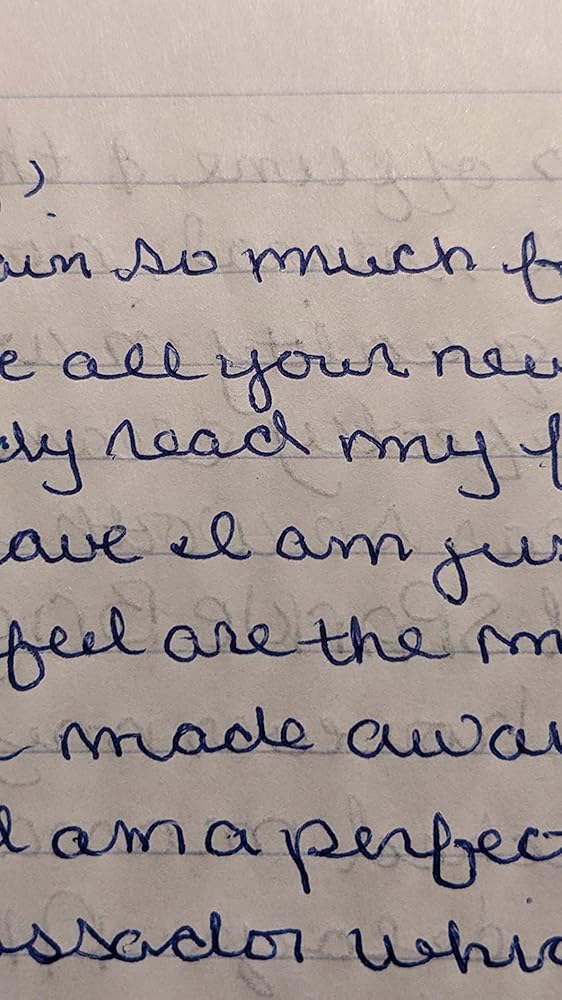 ,
ain so much f
e all your new
dy read my f
ave I am jus
feel are the m
made awar
I am a perfec
ssador whic